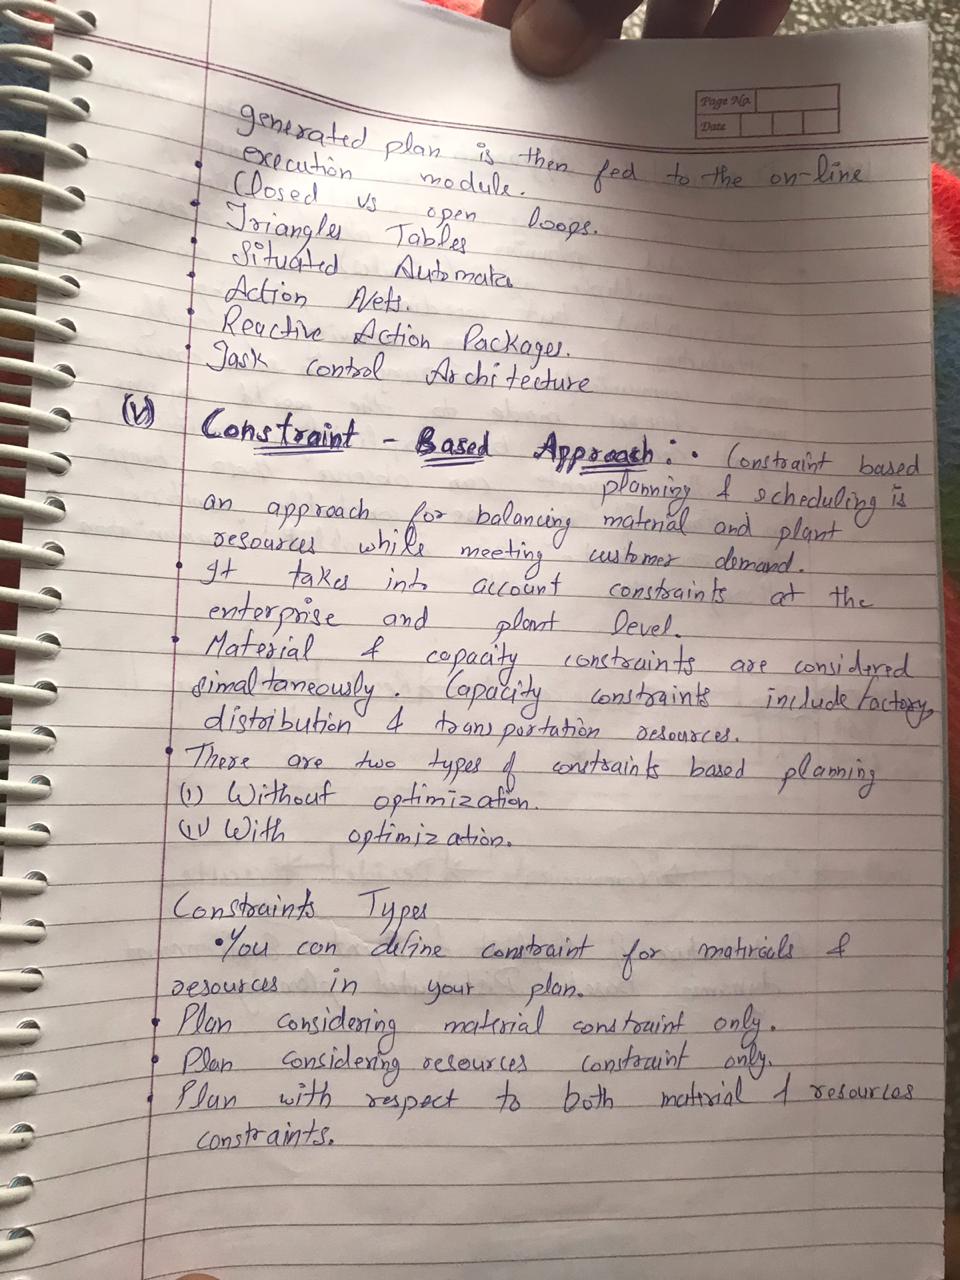 Page No.
Date
generated plan is then fed to the on-line
execution module.
• Closed vs open loops.
• Triangles Tables
• Situated Automata
• Action Nets.
• Reactive Action Packages.
• Task control Architecture
(V) Constraint - Based Approach :. Constraint based
planning & scheduling is
an approach for balancing material and plant
resources while meeting customer demand.
• It takes into account constraints at the
enterprise and plant level.
• Material & capacity constraints are considered
simaltaneously. Capacity constraints include factory,
distribution & transportation resources.
• There are two types of constraints based planning
(i) Without optimization.
(ii) With optimization.
Constraints Types
• You can define constraint for matirials &
resources in your plan.
• Plan considering material constraint only.
• Plan considering resources constraint only.
• Plan with respect to both material & resources
constraints.